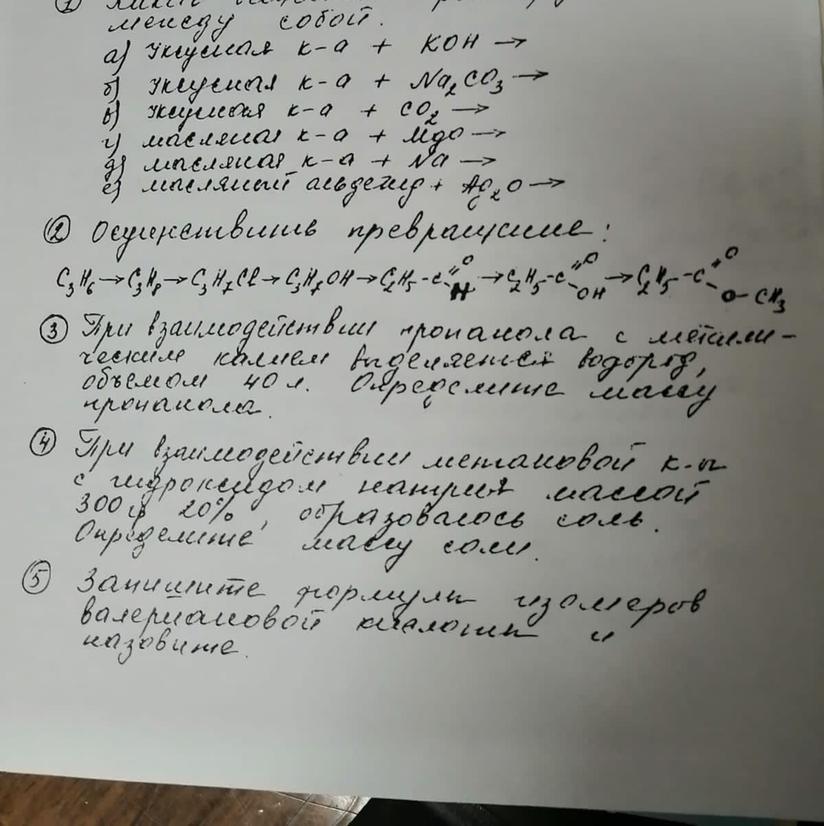 ①
между собой.
а) Уксусная к-а + KOH →
б) Уксусная к-а + Na₂CO₃ →
в) Уксусная к-а + CO₂ →
г) масляная к-а + MgO →
д) масляная к-а + Na →
е) масляный альдегид + Ag₂O →
② Осуществить превращение:
C₃H₆ → C₃H₈ → C₃H₇Cl → C₃H₇OH → C₂H₅-C=O H → C₂H₅-C=O OH → C₂H₅-C=O O-CH₃
③ При взаимодействии пропанола с металли-
ческим калием выделяется водород,
объёмом 40 л. Определите массу
пропанола.
④ При взаимодействии метановой к-ы
с гидроксидом натрия массой
300 гр 20%, образовалось соль.
Определите массу соли.
⑤ Запишите формулы изомеров
валериановой кислоты и
назовите.